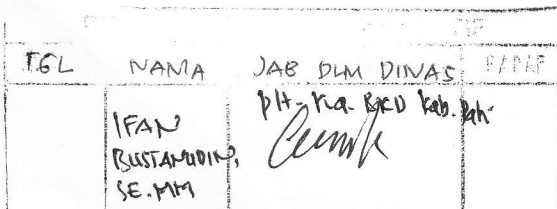 TGL NAMA JAB DLM DINAS PARAF
IFAN BUSTANUDIN, SE.MM
Plt. Ka. BKD Kab. Pati